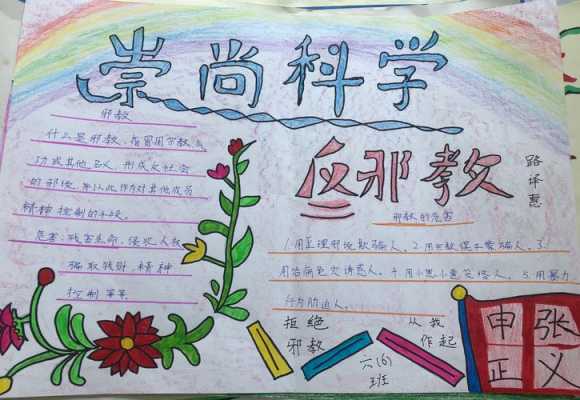 崇尚科学
反邪教
路译慧
邪教
什么是邪教,指冒用宗教气
功或其他名义,形成反社会
的邪说,并以此作为对其他成员
精神控制的手段。
危害:残害生命、侵犯人权
骗取钱财、精神
控制等等
邪教的危害
1.用歪理邪说欺骗人。2.用
人。3.
用治病免灾诱惑人。4.用小恩小惠
人。5.用暴力
行为胁迫人。
拒绝
邪教
从我
作起
六(6)
班
申张
正义